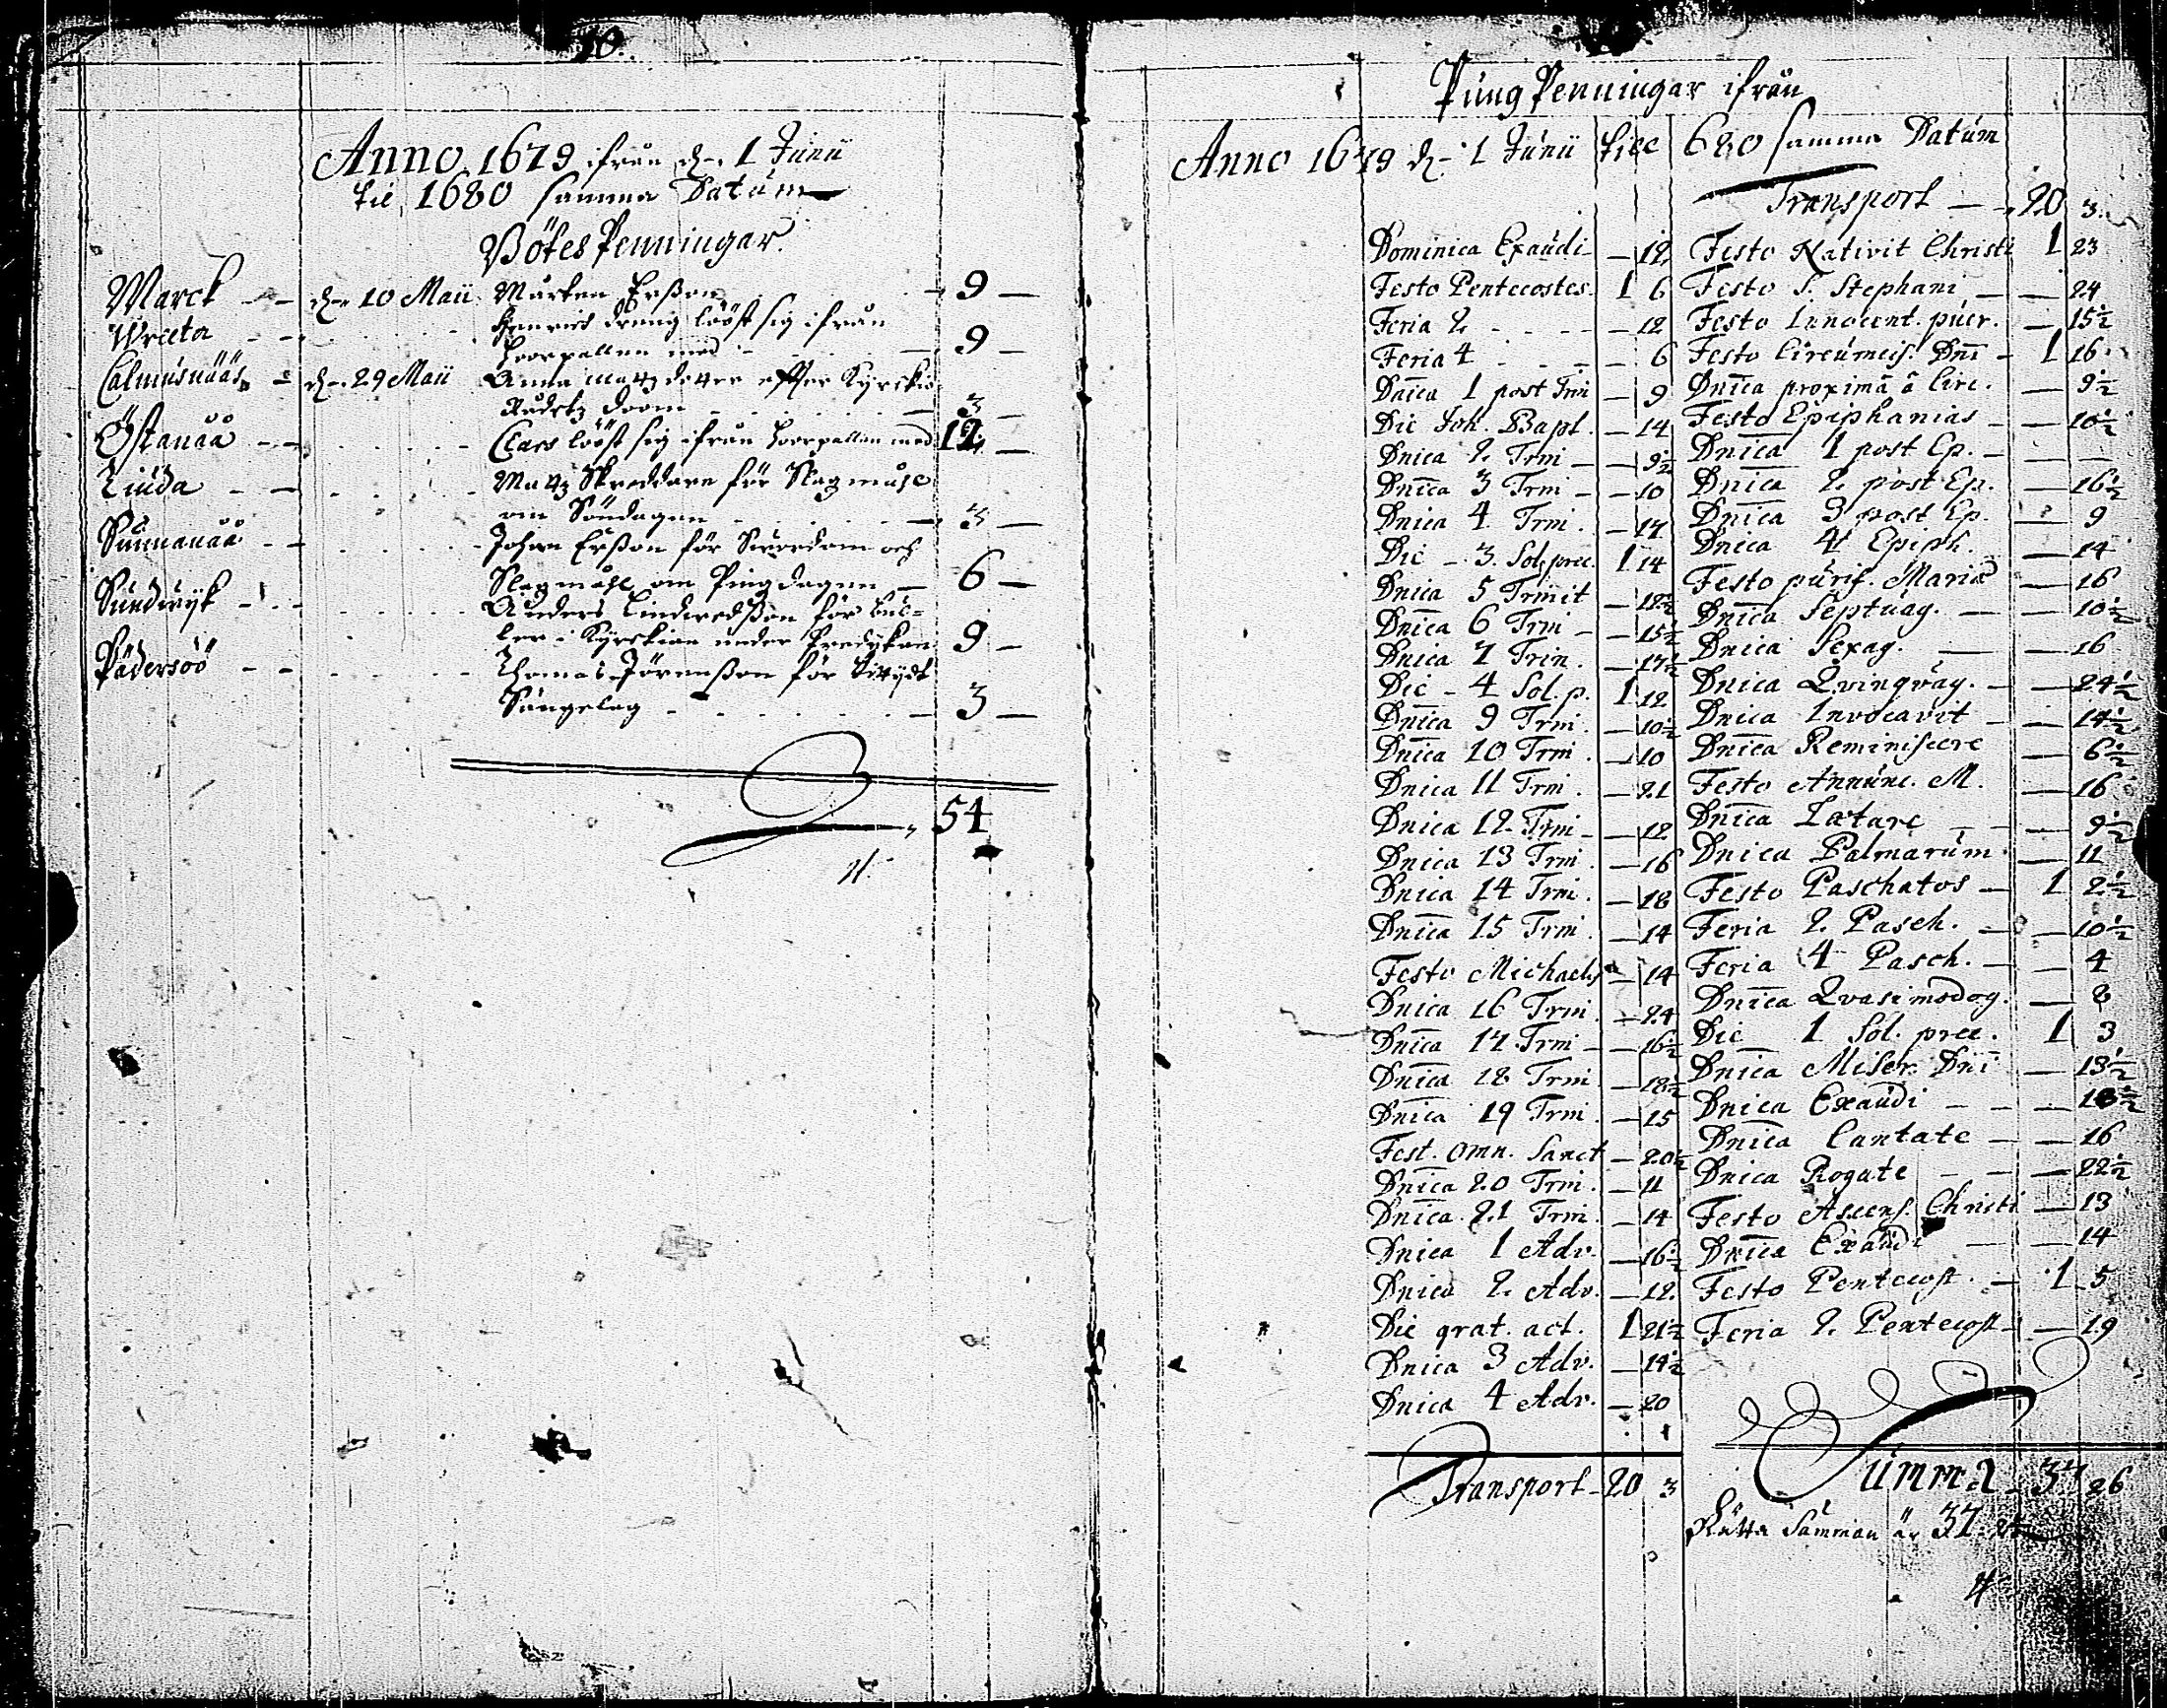 10.
Anno 1679 ifrån d. 1 Junii
til 1680 samma Datum
Bötes Penningar.
Marck - - d. 10 Maii Mårten Erßon - 9 -
Wreeta - - Henrich dreng lööst sig ifrån
Hoorpallen med - 9 -
Calmusnääs - d. 29 Maii Anna Matzdotter effter Kyrckio
Rådetz doom - 3 -
Östanåå - - Clars lööst sig ifrån hoorpallen med 12 -
Linda - - Matz Skreddare för Slagmåhl
om Söndagen - 3 -
Sunnanåå - - Johan Erßon för Swordom och
Slagmåhl om Pingdagen - 6 -
Sundwyk - - Anders Lindwedßon för bul-
ler i Kyrckian under Predykan 9 -
Pädersöö - - Thomas Jörenßon för
Sängelag - 3 -
54
Pung Penningar ifrån
Anno 1679 d. 1 Junii till 680 samma Datum
Dominica Exaudi - 12
Festo Pentecostes. 1 6
Feria 2 - - 12
Feria 4 - - 6
Dnica 1 post Trni - 9
Die Joh. Bapt. - 14
Dnica 2 Trni - - 9½
Dnica 3 Trni - - 10
Dnica 4 Trni. - 17
Die - 3. Sol. prec. 1 14
Dnica 5 Trinit - 12½
Dnica 6 Trin - - 15½
Dnica 7 Trin. - 17½
Die - 4 Sol. p. 1 12
Dnica 9 Trni. - 10½
Dnica 10 Trni. - 10
Dnica 11 Trni. - 21
Dnica 12 Trni - - 12
Dnica 13 Trni. - 16
Dnica 14 Trni. - 18
Dnica 15 Trni. - 14
Festo Michaelis - 14
Dnica 16 Trni. - 24
Dnica 17 Trni - - 16½
Dnica 18 Trni - 18½
Dnica 19 Trni. - 15
Fest. omn. Sanct - 20½
Dnica 20 Trni. - 11
Dnica 21 Trni. - 14
Dnica 1 Adv. - 16½
Dnica 2 Adv. - 12.
Die grat. act. 1 21½
Dnica 3 Adv. - 14½
Dnica 4 Adv. - 20
Transport - 20 3
Transport - - 20 3.
Festo Nativit Christi 1 23
Festo S. Stephani - - 24
Festo Innocent. puer. - 15½
Festo Circumcis. Dni - 1 16
Dnica proximâ â Circ. - 9½
Festo Epiphanias - - 10½
Dnica 1 post Ep. - - -
Dnica 2 post Ep. - 16½
Dnica 3 post Ep. - 9
Dnica 4 Epiph. - 14
Festo purif. Mariæ - 16
Dnica Septuag. - - 10½
Dnica Sexag. - - 16
Dnica Qvinqvag. - - 24½
Dnica Invocavit - - 14½
Dnica Reminiscere - 6½
Festo Annunc. M. - 16
Dnica Lætare - - 9½
Dnica Palmarum - 11
Festo Paschatos - 1 2½
Feria 2 Pasch. - - 10½
Feria 4 Pasch. - - 4
Dnica Qvasimodog. - 8
Die 1 Sol. prec. 1 3
Dnica Miser. Dni - 13½
Dnica Exaudi - - -
Dnica Cantate - - 16
Dnica Rogate - - 22½
Festo Ascens. Christi - 13
Dnica Exaudi - - 14
Festo Pentecost. - 1 5
Feria 2 Pentecost - - 19
Summa - 37 26
Rätta Summan är 37